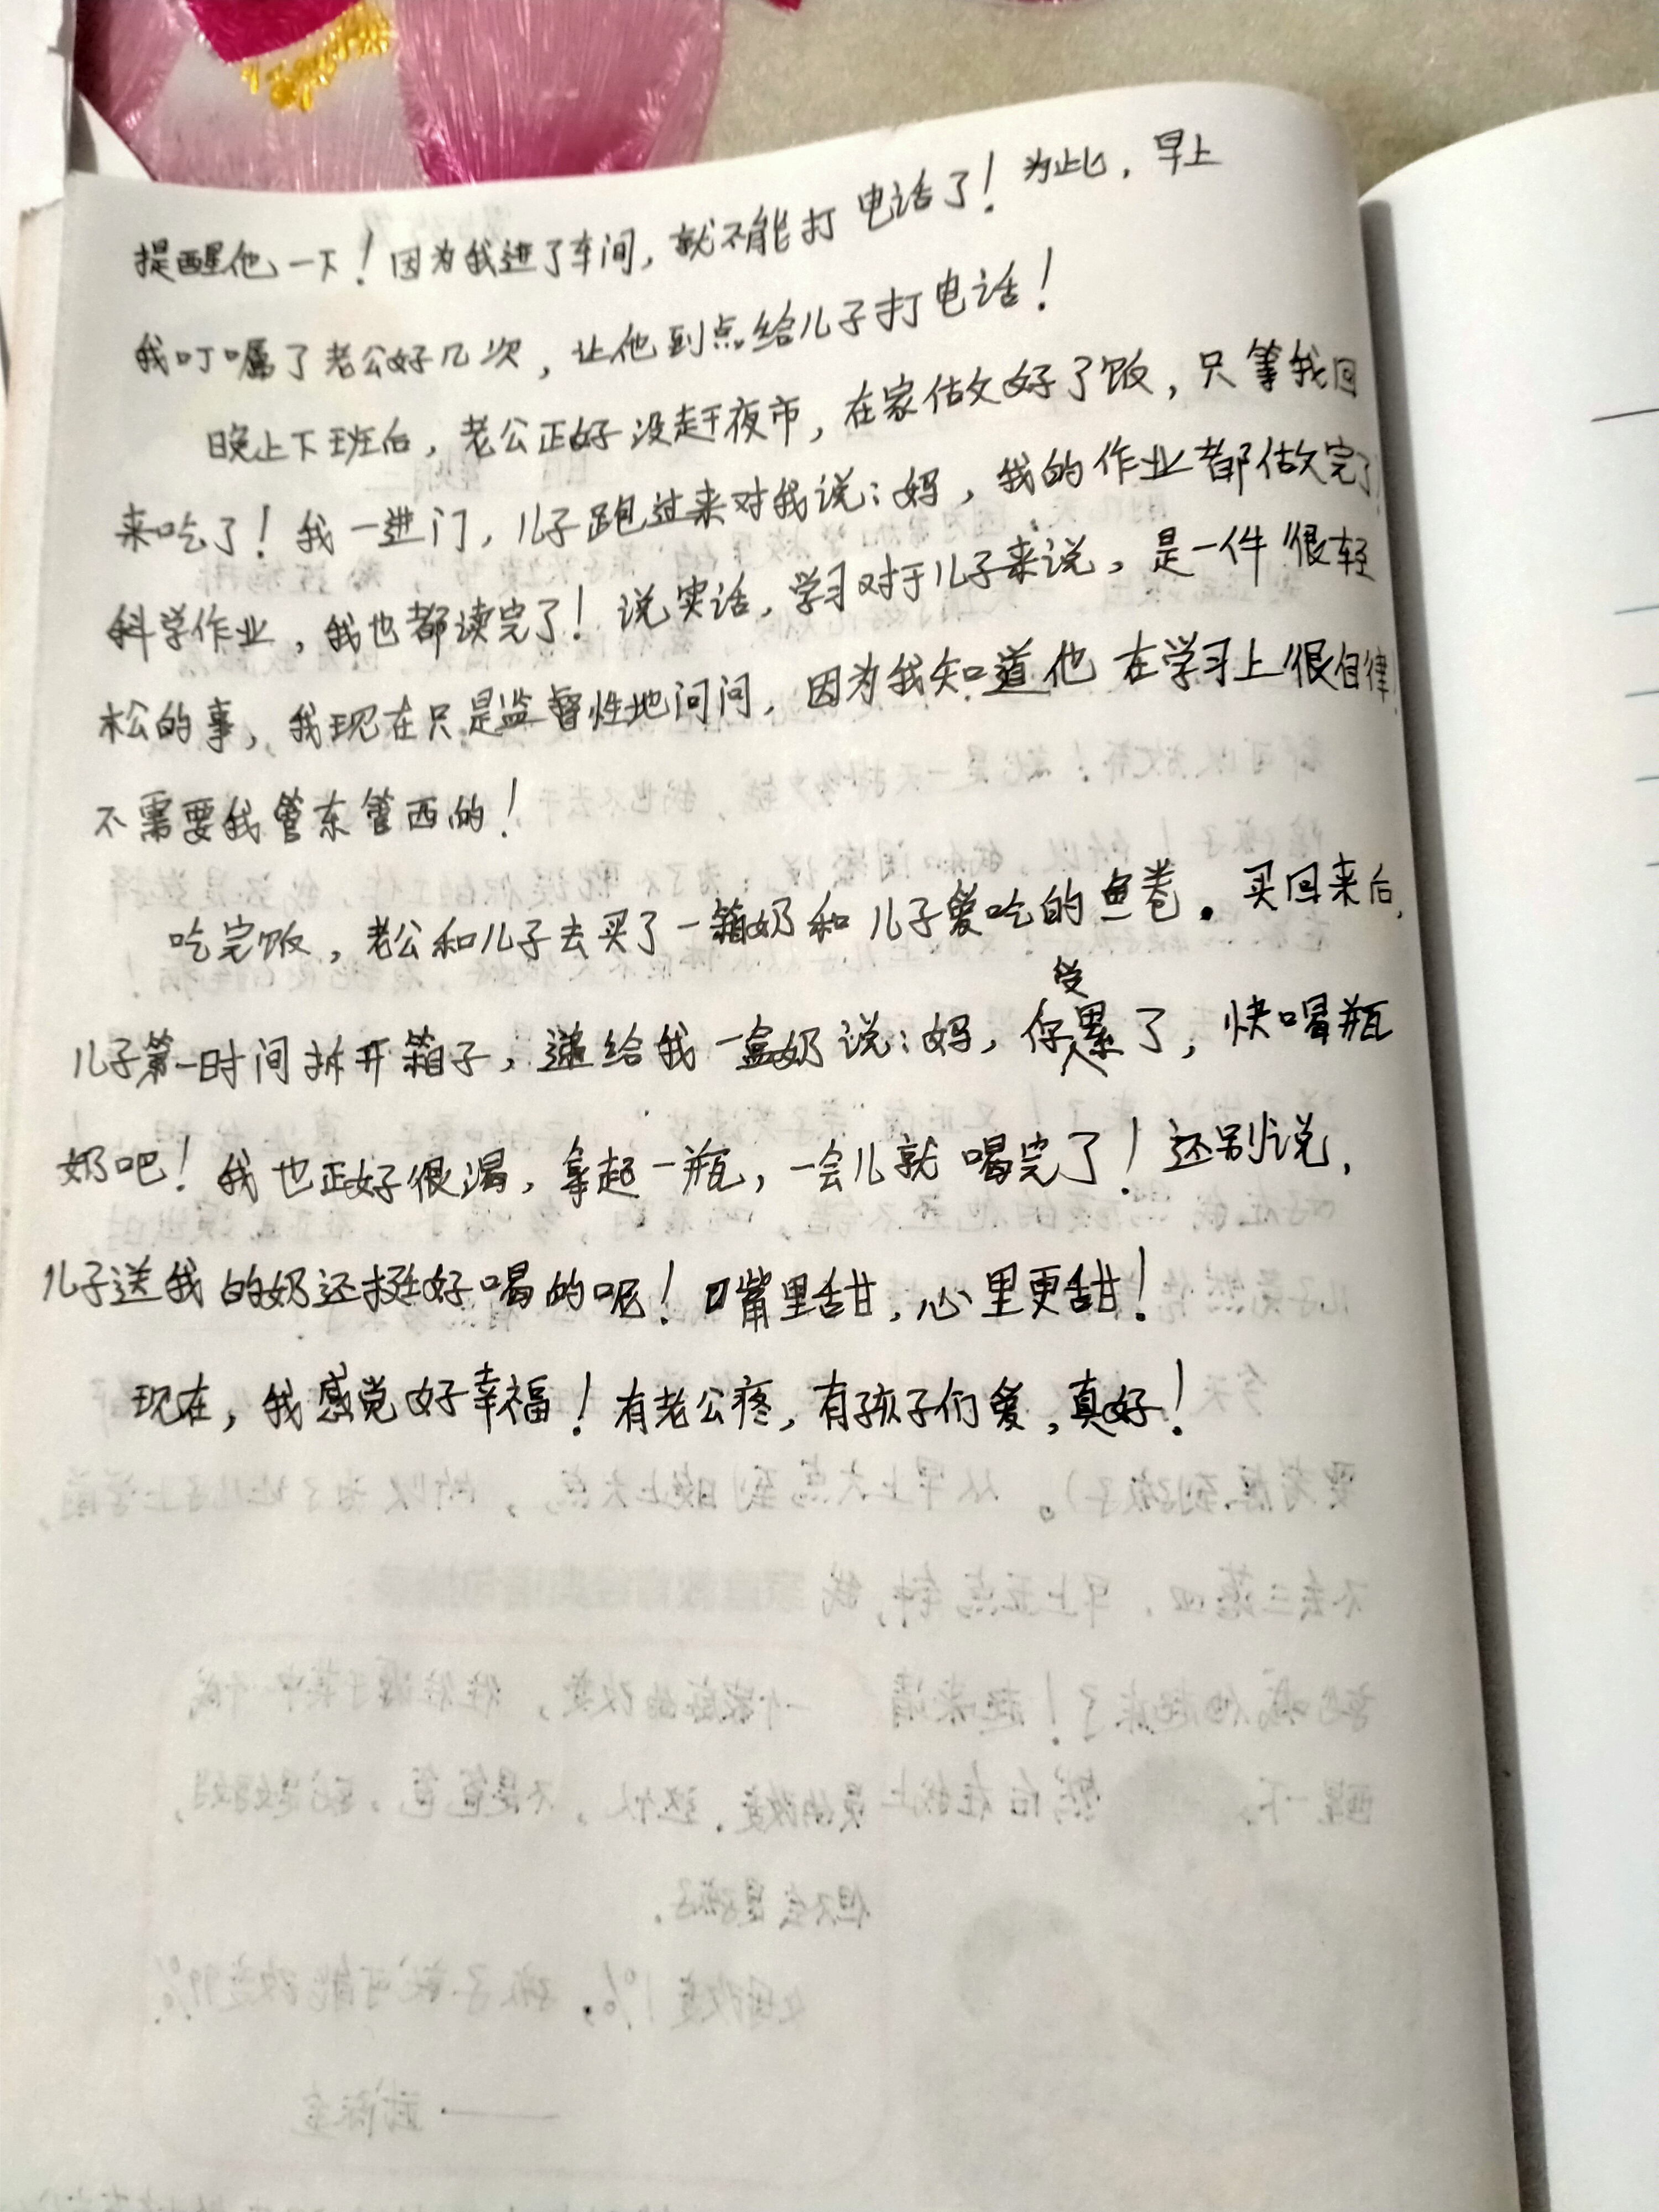 提醒他一下！因为我进了车间，就不能打电话了！为此，早上
我叮嘱了老公好几次，让他到点给儿子打电话！
晚上下班后，老公正好没赶夜市，在家做好了饭，只等我回
来吃了！我一进门，儿子跑过来对我说：妈，我的作业都做完了！
科学作业，我也都读完了！说实话，学习对于儿子来说，是一件很轻
松的事，我现在只是监督性地问问，因为我知道他在学习上很自律！
不需要我管东管西的！
吃完饭，老公和儿子去买了一箱奶和儿子爱吃的鱼卷。买回来后，
儿子第一时间拆开箱子，递给我一盒奶说：妈，你受累了，快喝瓶
奶吧！我也正好很渴，拿起一瓶，一会儿就喝完了！还别说，
儿子送我的奶还挺好喝的呢！嘴里甜，心里更甜！
现在，我感觉好幸福！有老公疼，有孩子们爱，真好！